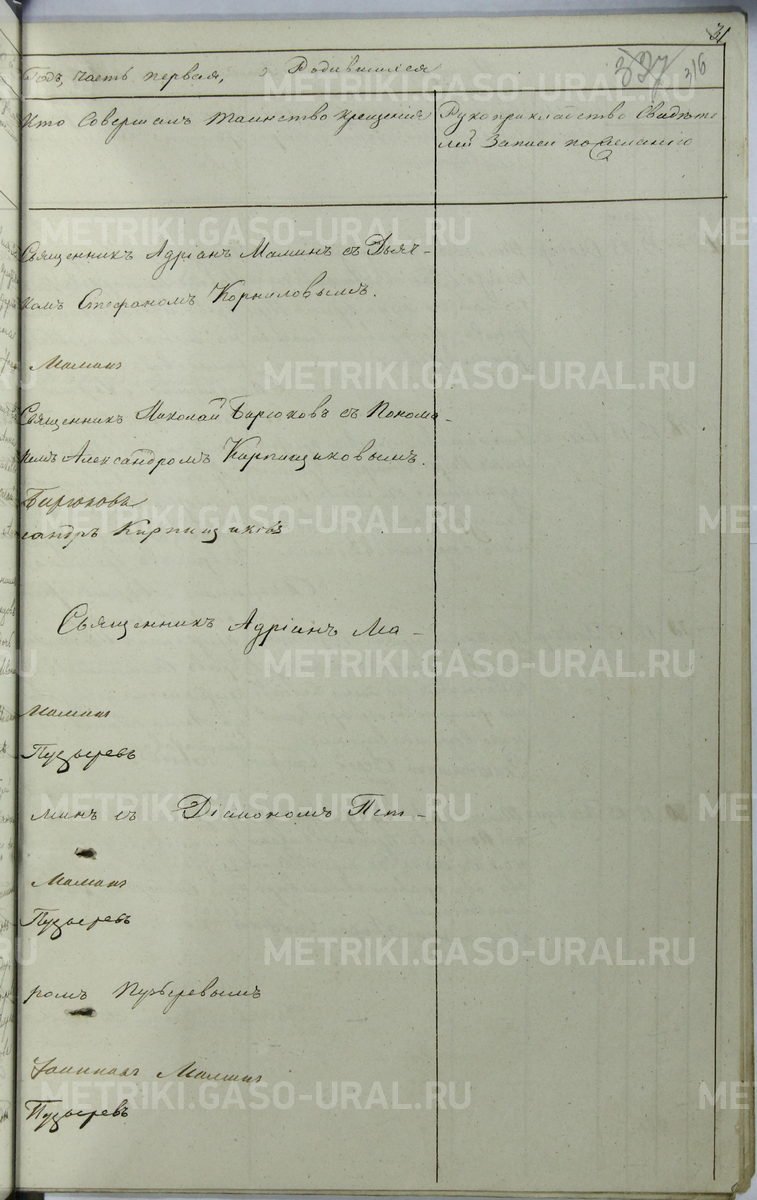 31
Годъ, часть первая, о Родившихся
337
316
Кто Совершалъ таинство крещенія
Рукоприкладство Свидѣте
лей Записи по желанію
Священникъ Адріанъ Маминъ съ Дьяч-
комъ Стефаномъ Корниловымъ.
Маминъ
Священникъ Николай Бирюковъ съ Понома-
ремъ Александромъ Кирпищиковымъ.
Бирюковъ
сандръ Кирпищиковъ
Священникъ Адріанъ Ма-
Маминъ
Пузыревъ
минъ съ Діакономъ Пет-
Маминъ
Пузыревъ
ромъ Пузыревымъ
Маминъ
Пузыревъ
METRIKI.GASO-URAL.RU